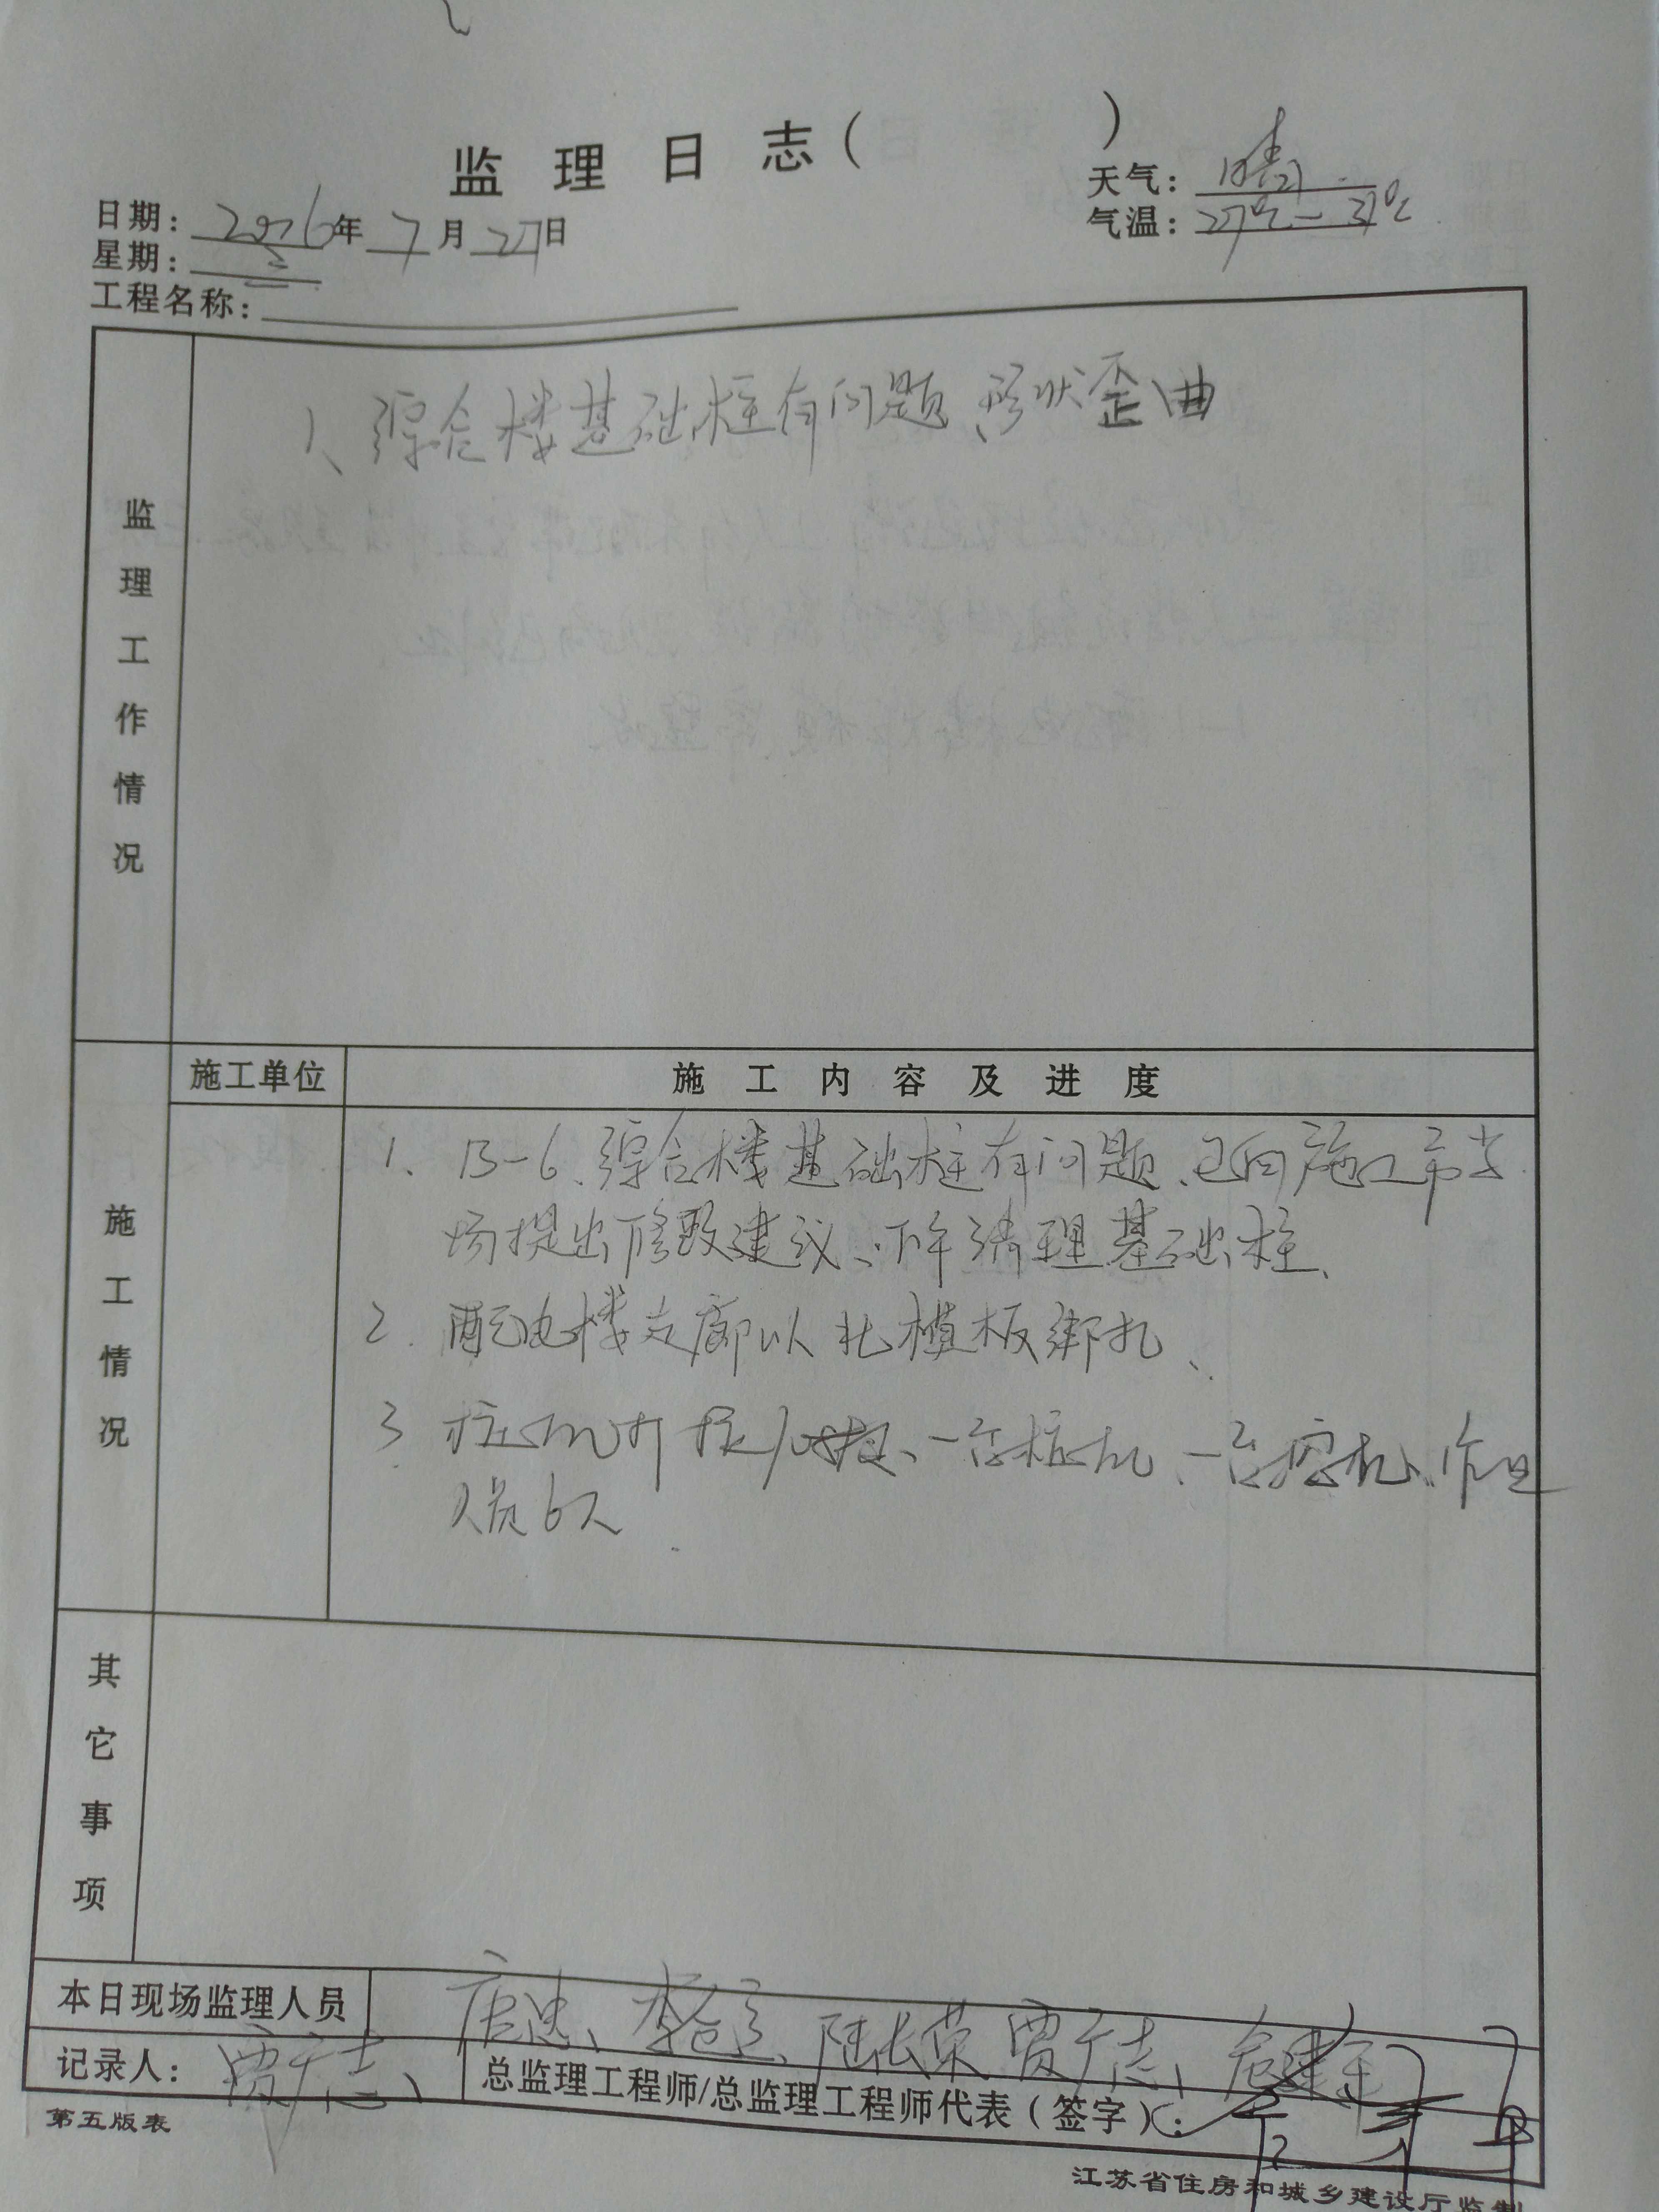 监 理 日 志（ ）
日期：2016年7月27日
天气：晴
星期：三
气温：27℃－37℃
工程名称：
监理工作情况
1、综合楼基础柱有问题、形状歪曲
施工单位
施 工 内 容 及 进 度
施工情况
1、B-6、综合楼基础柱有问题、已向施工市当
场提出修改建议、下午清理基础柱、
2、配电楼走廊以北模板绑扎、
3 桩机开 一台桩机、一台挖机、作业
人员6人
其它事项
本日现场监理人员
唐忠、李 、陆长荣 贾于志、
记录人：贾于志、
总监理工程师/总监理工程师代表（签字）：
第五版表
江苏省住房和城乡建设厅监制